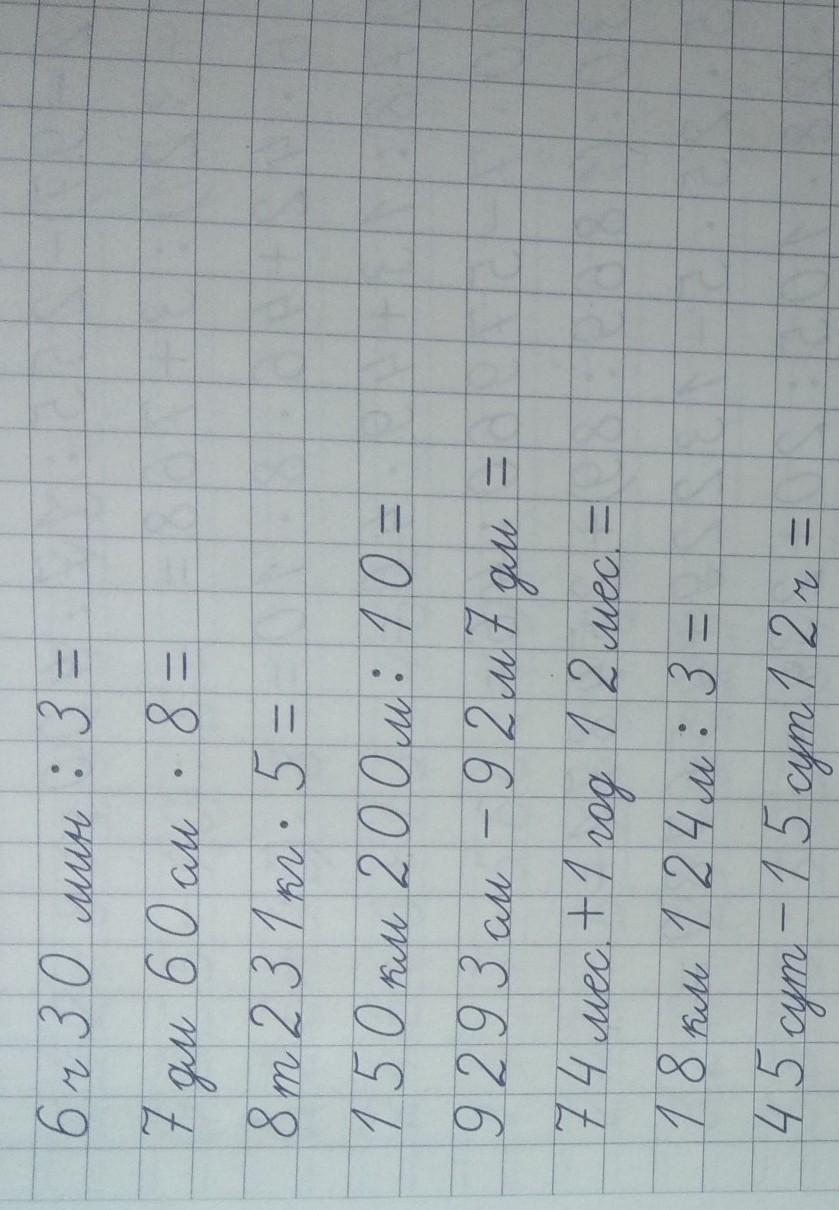 6 ч 30 мин : 3 =
7 дм 60 см · 8 =
8 т 231 кг · 5 =
150 км 200 м : 10 =
9293 см - 92 м 7 дм =
74 мес. + 1 год 12 мес. =
18 км 124 м : 3 =
45 сут - 15 сут 12 ч =